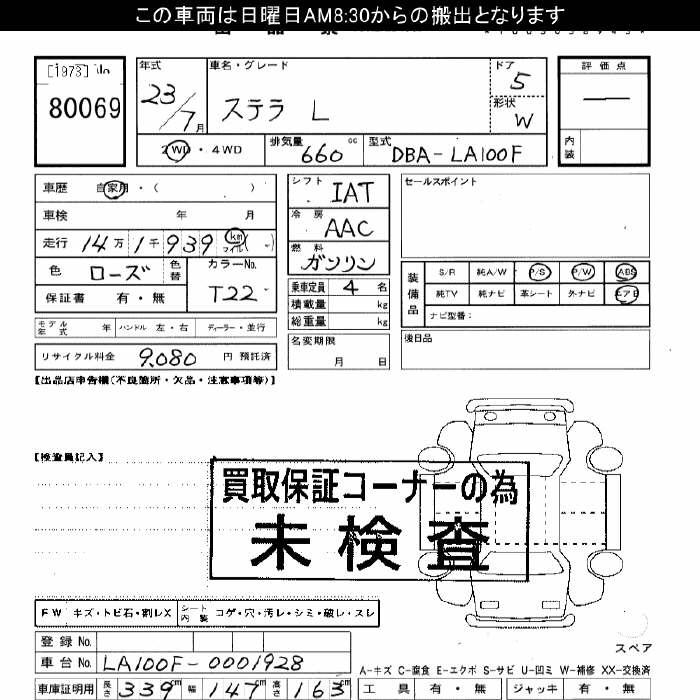 この車両は日曜日AM8:30からの搬出となります
[1973] No
80069
年式
23/7月
車名・グレード
ステラ L
ドア
5
形状
W
評価点
―
内装
2WD・4WD
排気量 660 cc
型式 DBA-LA100F
車歴 自家用・( )
車検 年 月
走行 14万1千939 km マイル( )
色 ローズ 色替
カラーNo. T22
保証書 有・無
モデル年式 年 ハンドル 左・右 ディーラー・並行
リサイクル料金 9,080 円 預託済
シフト IAT
冷房 AAC
燃料 ガソリン
乗車定員 4 名
積載量 kg
総重量 kg
名変期限
月 日
セールスポイント
装備品
S/R 純A/W P/S P/W ABS
純TV 純ナビ 革シート 外ナビ エアB
ナビ型番:
後日品
【出品店申告欄(不良箇所・欠品・注意事項等)】
【検査員記入】
買取保証コーナーの為
未検査
FW キズ・トビ石・割レX シート内装 コゲ・穴・汚レ・シミ・破レ・スレ
登録 No.
車台 No. LA100F-0001928
車庫証明用 長さ 339 cm 幅 147 cm 高さ 163 cm
スペア
A-キズ C-腐食 E-エクボ S-サビ U-凹ミ W-補修 XX-交換済
工具 有・無 ジャッキ 有・無